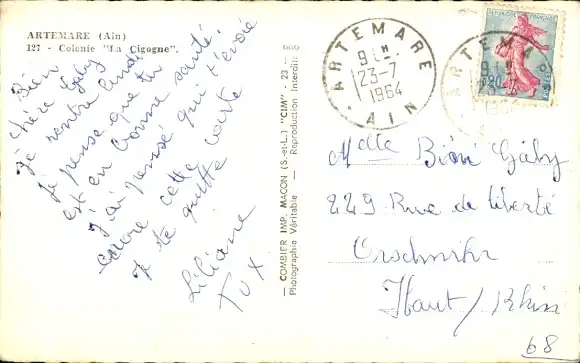 ARTEMARE (Ain)
127 - Colonie "La Cigogne".
Bien
Chère Gaby
je rentre lundi
Je pense que tu
est en bonne santé.
J'ai pensé qui t'envoie
encore cette carte
Je te quitte
Liliane
COMBIER IMP. MACON (S.-et-L.) "CIM" - 23 -
Photographie Véritable - Reproduction Interdite
ARTEMARE
9 H
23-7
1964
AIN
REPUBLIQUE FRANÇAISE
0,20
ARTEMARE
Melle Bioni Gaby
229 Rue de liberté
Haut/Rhin
68